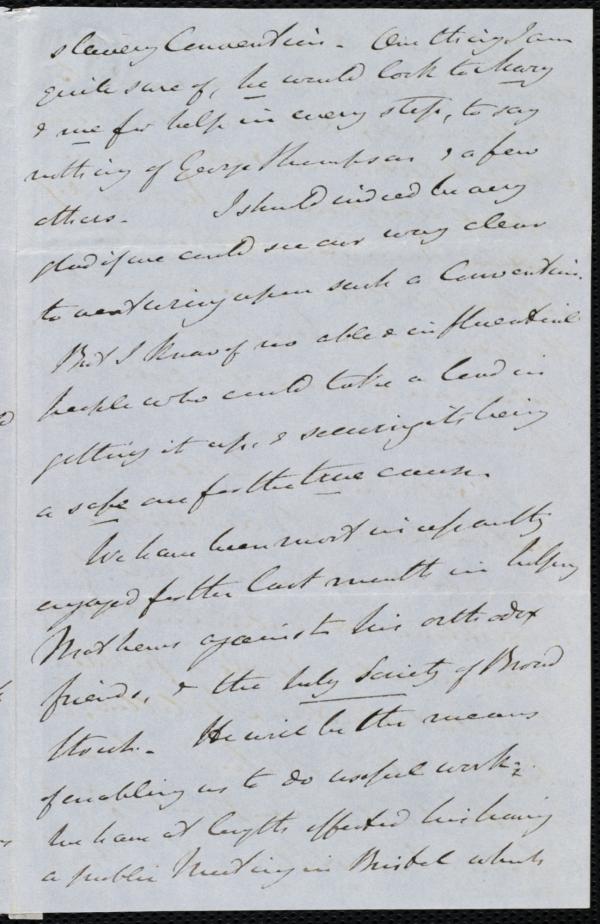 slavery Convention - One thing I am
quite sure of, he would look to Mary
& me for help in every step, to say
nothing of George Thompson & a few
others - I should indeed be very
glad if we could see our way clear
to venturing upon such a Convention.
But I know of no able & influential
people who could take a lead in
getting it up, & securing its being
a safe one for the true cause.
We have been most incessantly
engaged for the last month in helping
Mathews against his orthodox
friends, & the holy Society of Broad
Street. He will be the means
of enabling us to do useful work;
we have at length effected his having
a public Meeting in Bristol which